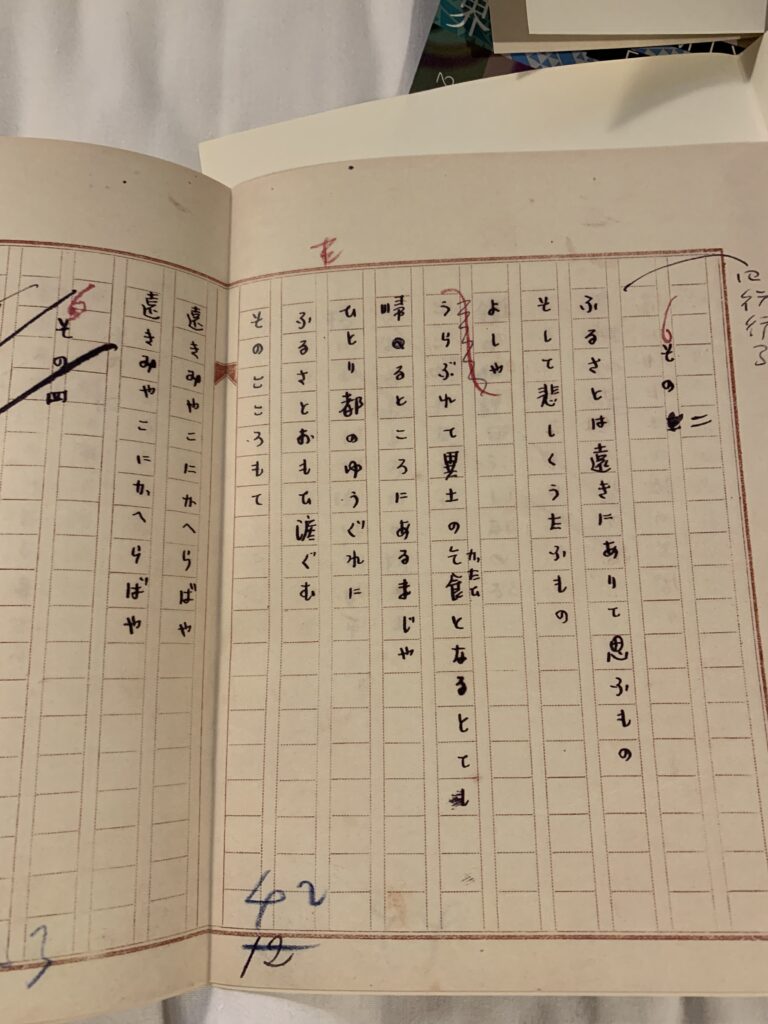 果
その二
ふるさとは遠きにありて思ふもの
そして悲しくうたふもの
よしや
かたひ
うらぶれて異土の乞食となるとても
帰るところにあるまじや
ひとり都のゆうぐれに
ふるさとおもひ涙ぐむ
そのこころもて
遠きみやこにかへらばや
遠きみやこにかへらばや
その四
42
12
3